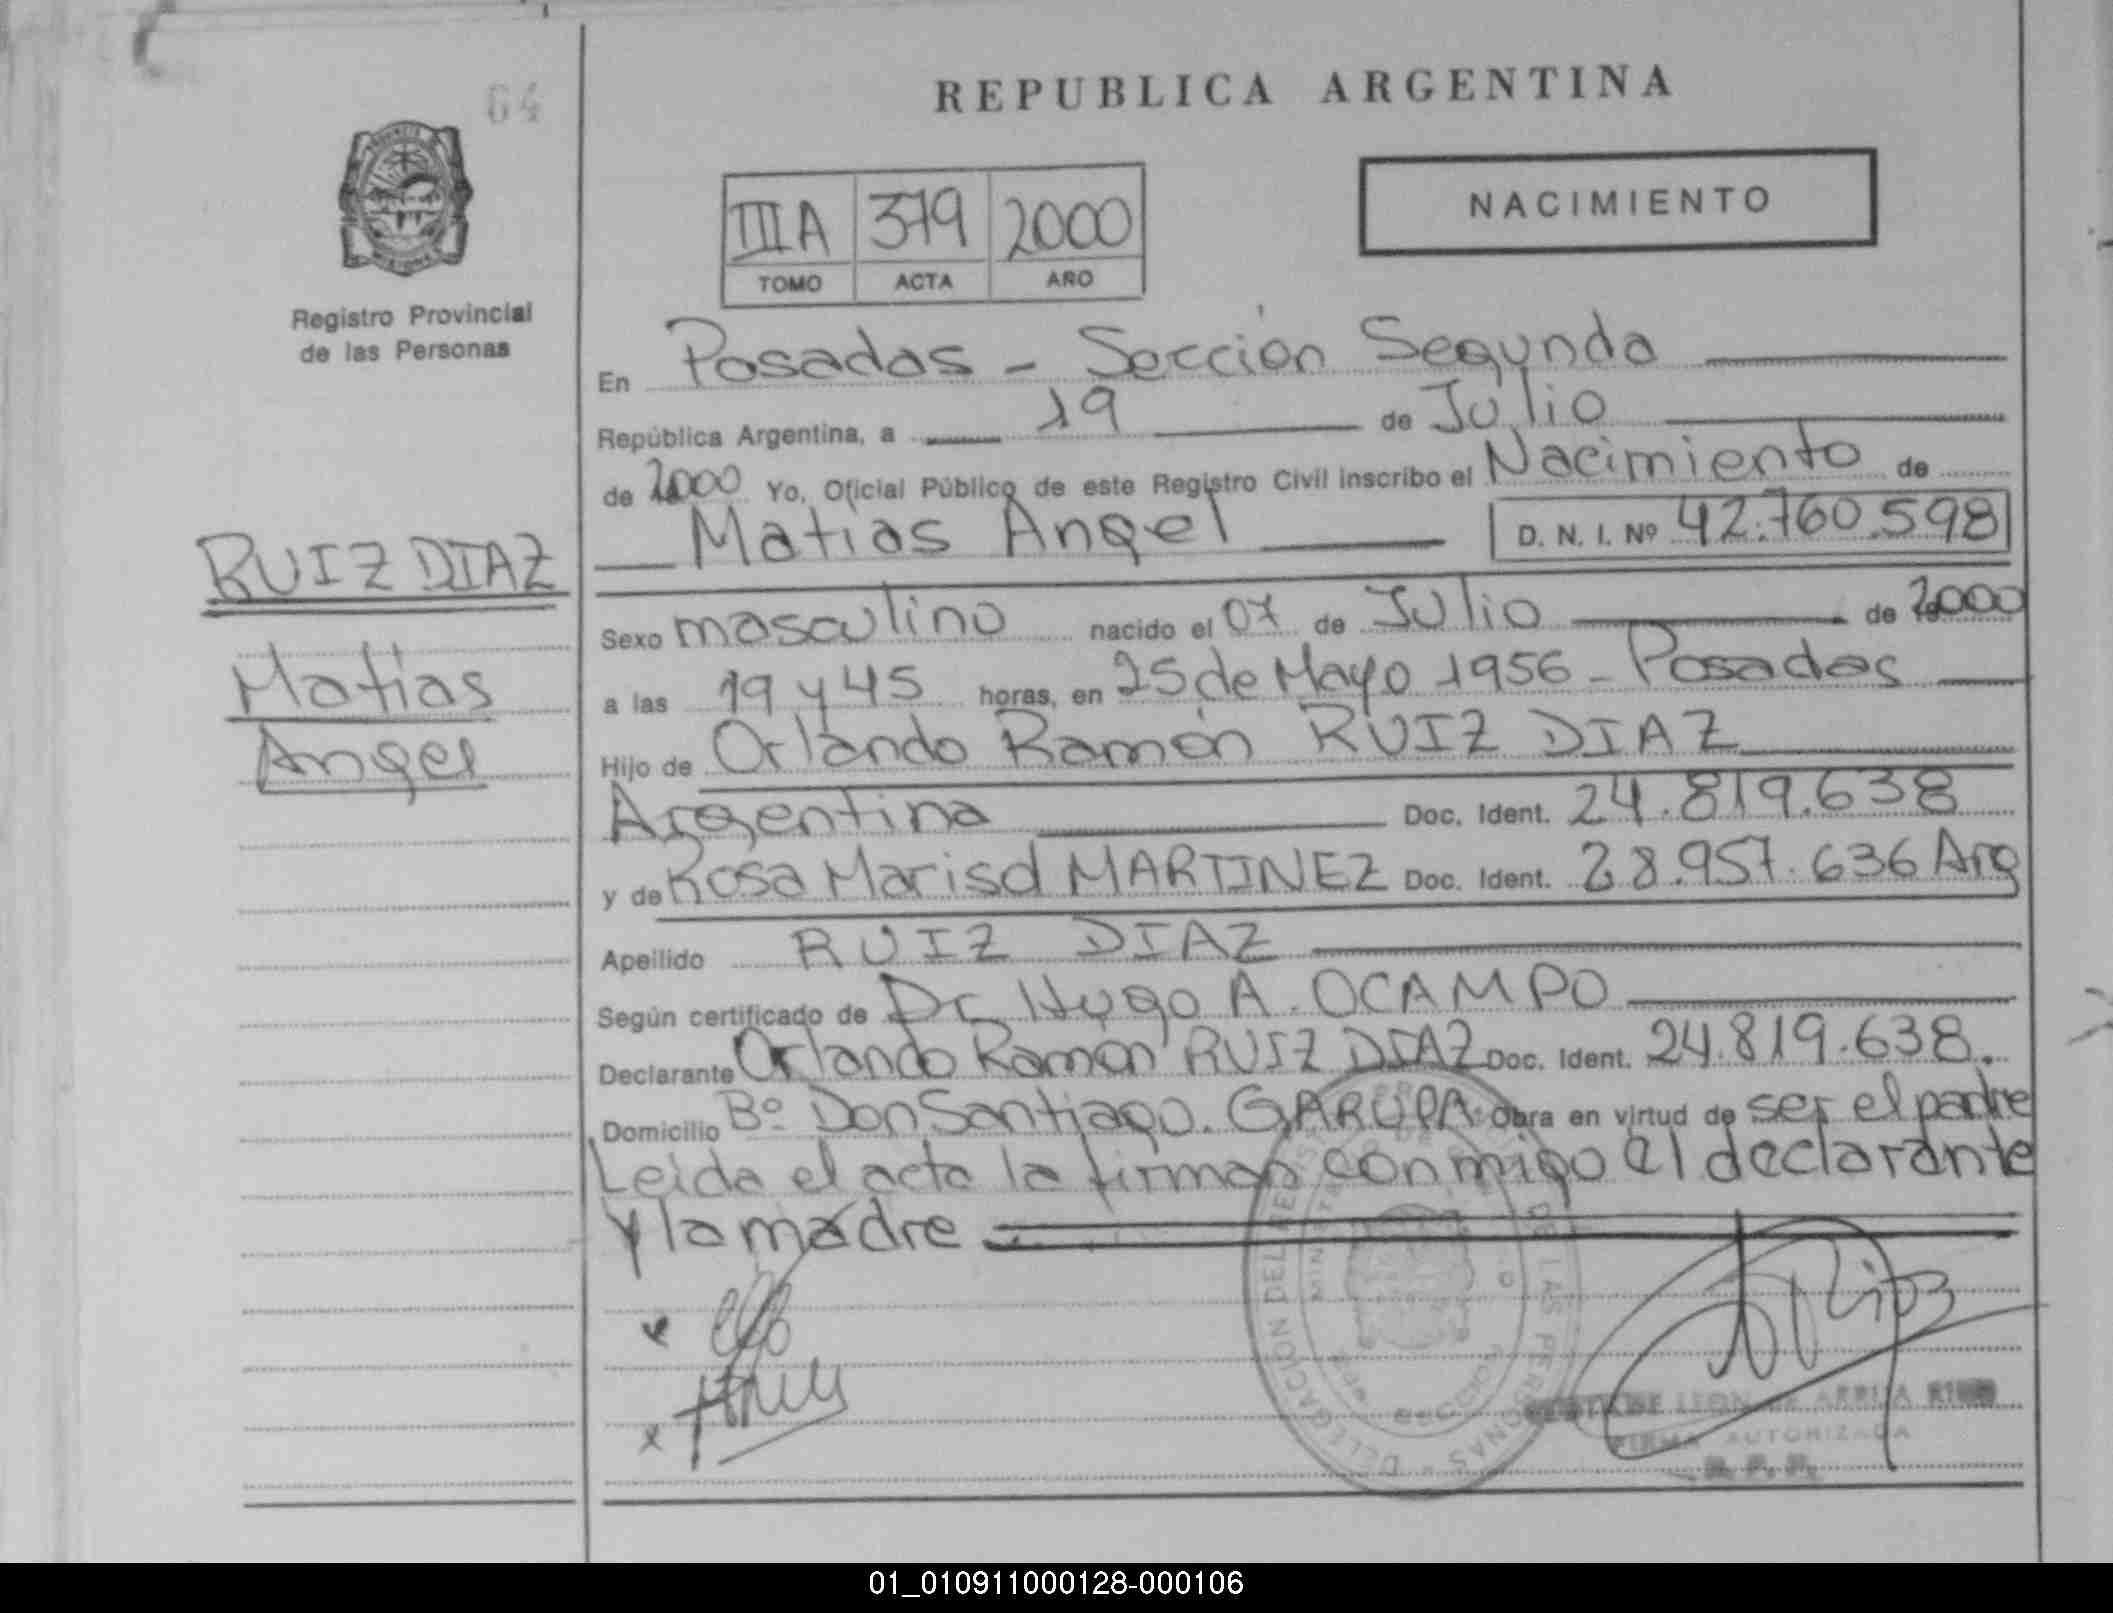 64
REPUBLICA ARGENTINA
NACIMIENTO
IIIA 379 2000
TOMO ACTA AÑO
Registro Provincial
de las Personas
En Posadas - Sección Segunda
República Argentina, a 19 de Julio
de 2000 Yo, Oficial Público de este Registro Civil inscribo el Nacimiento de
Matias Angel D. N. I. Nº 42.760.598
RUIZ DIAZ
Matias
Angel
Sexo masculino nacido el 07 de Julio de 2000
a las 19 y 45 horas, en 25 de Mayo 1956 - Posadas
Hijo de Orlando Ramón RUIZ DIAZ
Argentina Doc. Ident. 24.819.638
y de Rosa Marisol MARTINEZ Doc. Ident. 28.957.636 Arg
Apellido RUIZ DIAZ
Según certificado de Dr Hugo A. OCAMPO
Declarante Orlando Ramón RUIZ DIAZ Doc. Ident. 24.819.638.
Domicilio Bº Don Santiago. GARUPA Obra en virtud de ser el padre
Leida el acta la firman conmigo el declarante
y la madre
DELEGACION DEL REGISTRO DE LAS PERSONAS
FIRMA AUTORIZADA
R. P. P.
01_010911000128-000106